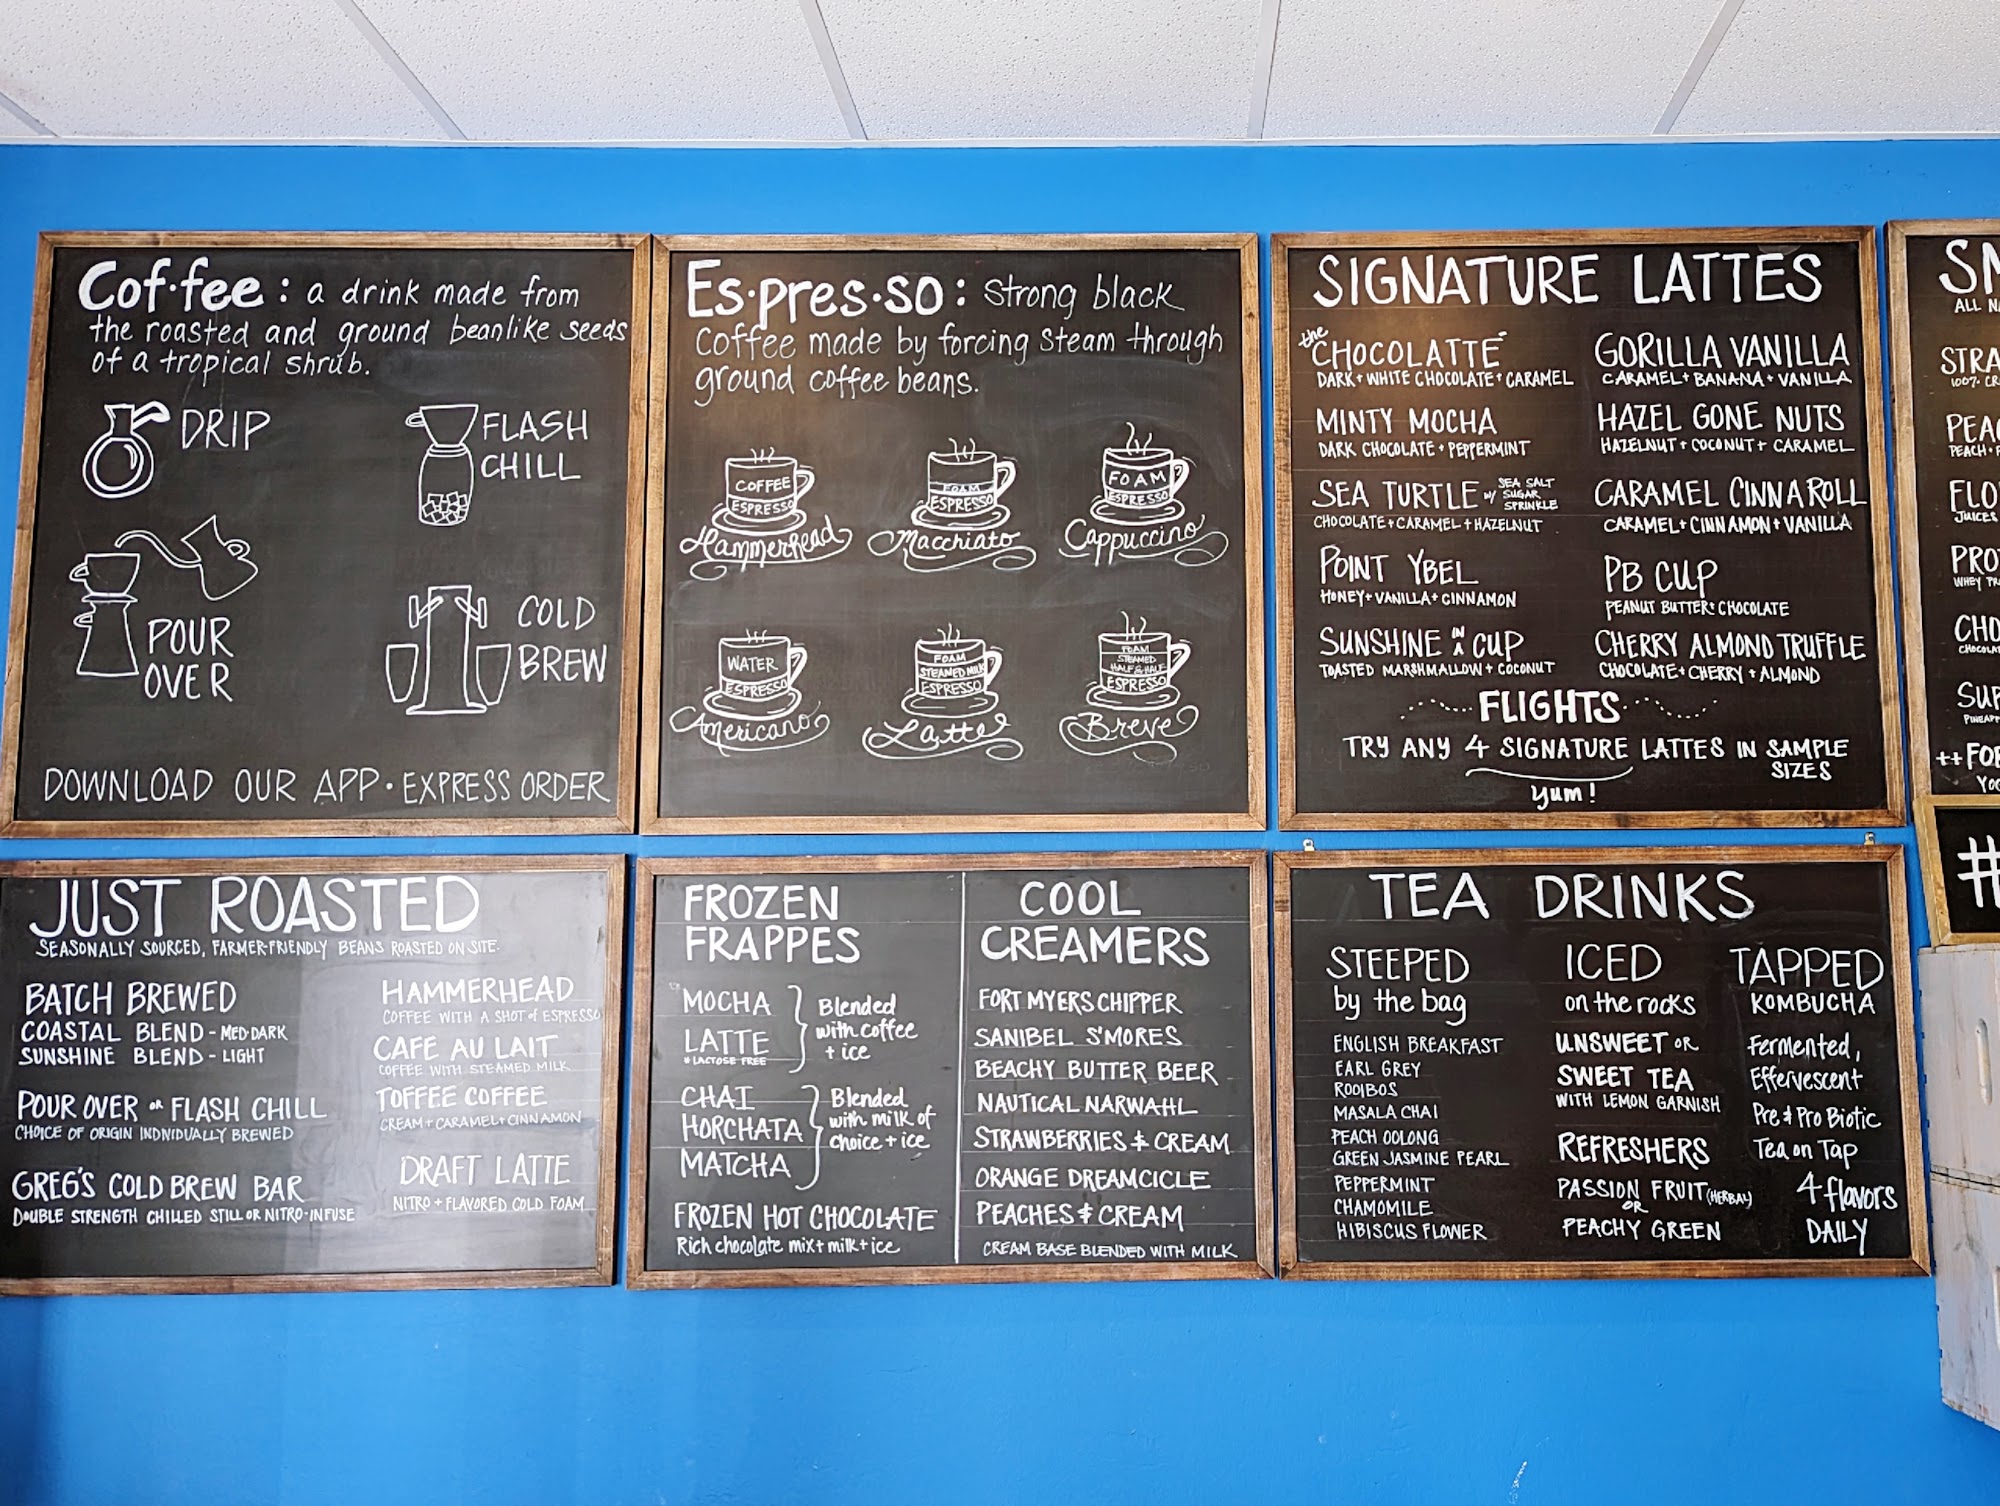 Cof·fee: a drink made from
the roasted and ground beanlike seeds
of a tropical shrub.
DRIP
FLASH
CHILL
POUR
OVER
COLD
BREW
DOWNLOAD OUR APP · EXPRESS ORDER
Es·pres·so: Strong black
Coffee made by forcing steam through
ground coffee beans.
COFFEE
ESPRESSO
Hammerhead
FOAM
ESPRESSO
Macchiato
FOAM
ESPRESSO
Cappuccino
WATER
ESPRESSO
Americano
FOAM
STEAMED MILK
ESPRESSO
Latte
FOAM
STEAMED
HALF & HALF
ESPRESSO
Breve
SIGNATURE LATTES
the CHOCOLATTE
DARK + WHITE CHOCOLATE + CARAMEL
MINTY MOCHA
DARK CHOCOLATE + PEPPERMINT
SEA TURTLE w/ SEA SALT SUGAR SPRINKLE
CHOCOLATE + CARAMEL + HAZELNUT
POINT YBEL
HONEY + VANILLA + CINNAMON
SUNSHINE IN A CUP
TOASTED MARSHMALLOW + COCONUT
GORILLA VANILLA
CARAMEL + BANANA + VANILLA
HAZEL GONE NUTS
HAZELNUT + COCONUT + CARAMEL
CARAMEL CINNAROLL
CARAMEL + CINNAMON + VANILLA
PB CUP
PEANUT BUTTER + CHOCOLATE
CHERRY ALMOND TRUFFLE
CHOCOLATE + CHERRY + ALMOND
FLIGHTS
TRY ANY 4 SIGNATURE LATTES IN SAMPLE
SIZES
yum!
SM
ALL NA
STRA
100% CR
PEAC
PEACH +
FLO
JUICES
PRO
WHEY PR
CHO
CHOCOLAT
SUP
PINEAPP
++FOR
YOG
#
JUST ROASTED
SEASONALLY SOURCED, FARMER-FRIENDLY BEANS ROASTED ON SITE.
BATCH BREWED
COASTAL BLEND - MED·DARK
SUNSHINE BLEND - LIGHT
POUR OVER OR FLASH CHILL
CHOICE OF ORIGIN INDIVIDUALLY BREWED
GREG'S COLD BREW BAR
DOUBLE STRENGTH CHILLED STILL OR NITRO-INFUSE
HAMMERHEAD
COFFEE WITH A SHOT of ESPRESSO
CAFE AU LAIT
COFFEE WITH STEAMED MILK
TOFFEE COFFEE
CREAM + CARAMEL + CINNAMON
DRAFT LATTE
NITRO + FLAVORED COLD FOAM
FROZEN
FRAPPES
MOCHA
LATTE
# LACTOSE FREE
Blended
with coffee
+ ice
CHAI
HORCHATA
MATCHA
Blended
with milk of
choice + ice
FROZEN HOT CHOCOLATE
Rich chocolate mix + milk + ice
COOL
CREAMERS
FORT MYERS CHIPPER
SANIBEL S'MORES
BEACHY BUTTER BEER
NAUTICAL NARWAHL
STRAWBERRIES & CREAM
ORANGE DREAMCICLE
PEACHES & CREAM
CREAM BASE BLENDED WITH MILK
TEA DRINKS
STEEPED
by the bag
ENGLISH BREAKFAST
EARL GREY
ROOIBOS
MASALA CHAI
PEACH OOLONG
GREEN JASMINE PEARL
PEPPERMINT
CHAMOMILE
HIBISCUS FLOWER
ICED
on the rocks
UNSWEET OR
SWEET TEA
WITH LEMON GARNISH
REFRESHERS
PASSION FRUIT (HERBAL)
OR
PEACHY GREEN
TAPPED
KOMBUCHA
Fermented,
Effervescent
Pre & Pro Biotic
Tea on Tap
4 flavors
DAILY